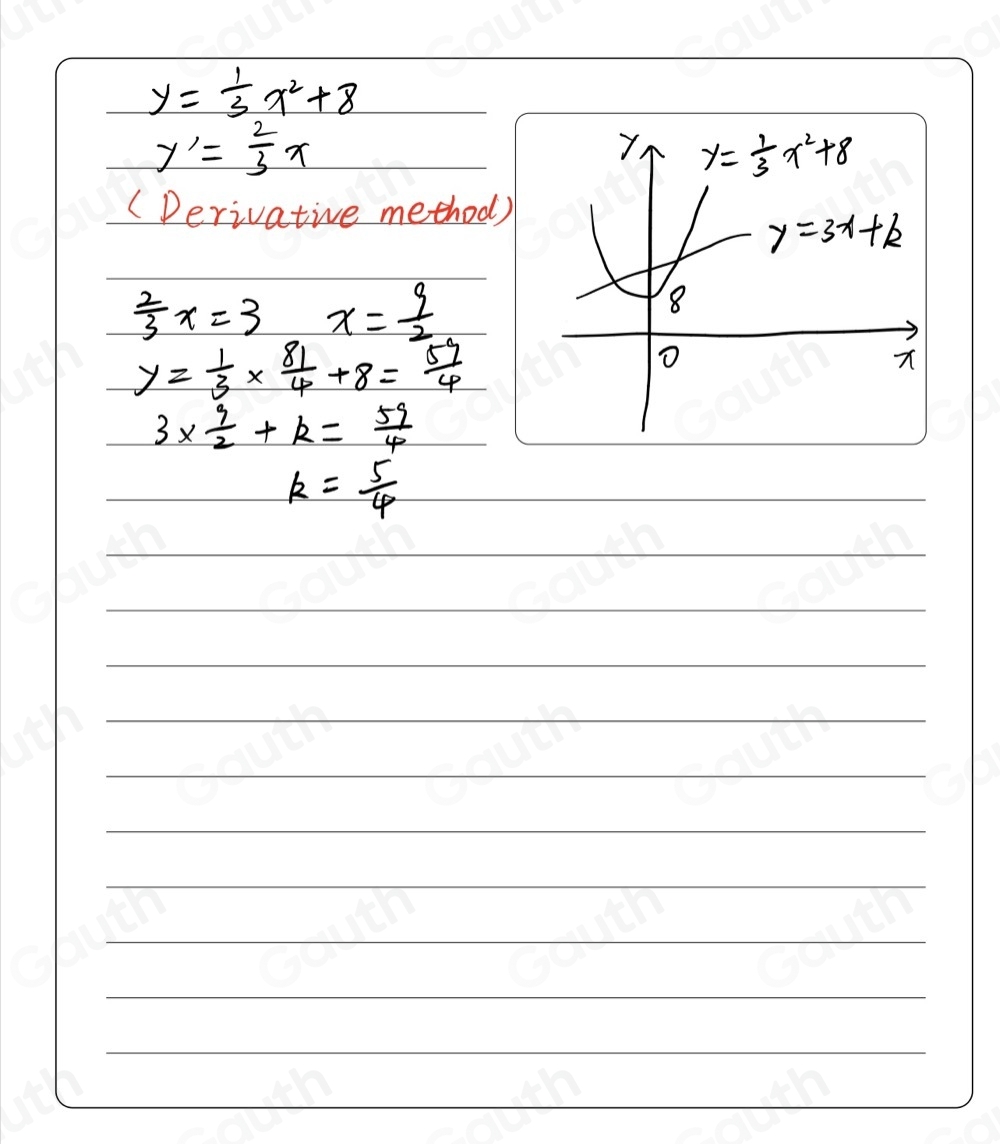 y = 1/3 x² + 8
y' = 2/3 x
(Derivative method)
2/3 x = 3 x = 9/2
y = 1/3 × 81/4 + 8 = 59/4
3 × 9/2 + k = 59/4
k = 5/4
y y = 1/3 x² + 8
y = 3x + k
8
0 x
Gauth